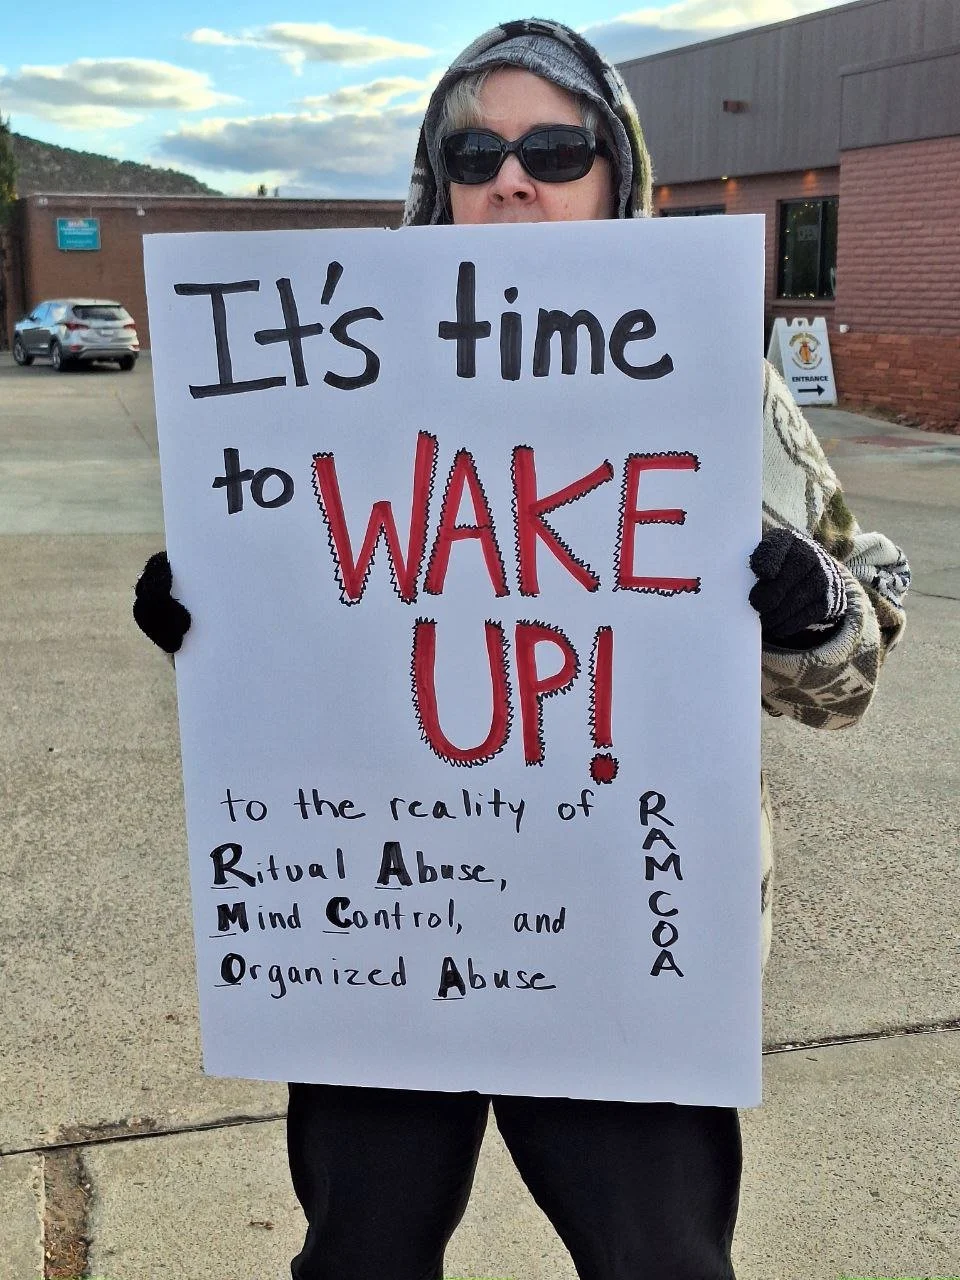 It's time
to WAKE
UP!
to the reality of
Ritual Abuse,
Mind Control, and
Organized Abuse
RAMCOA
ENTRANCE